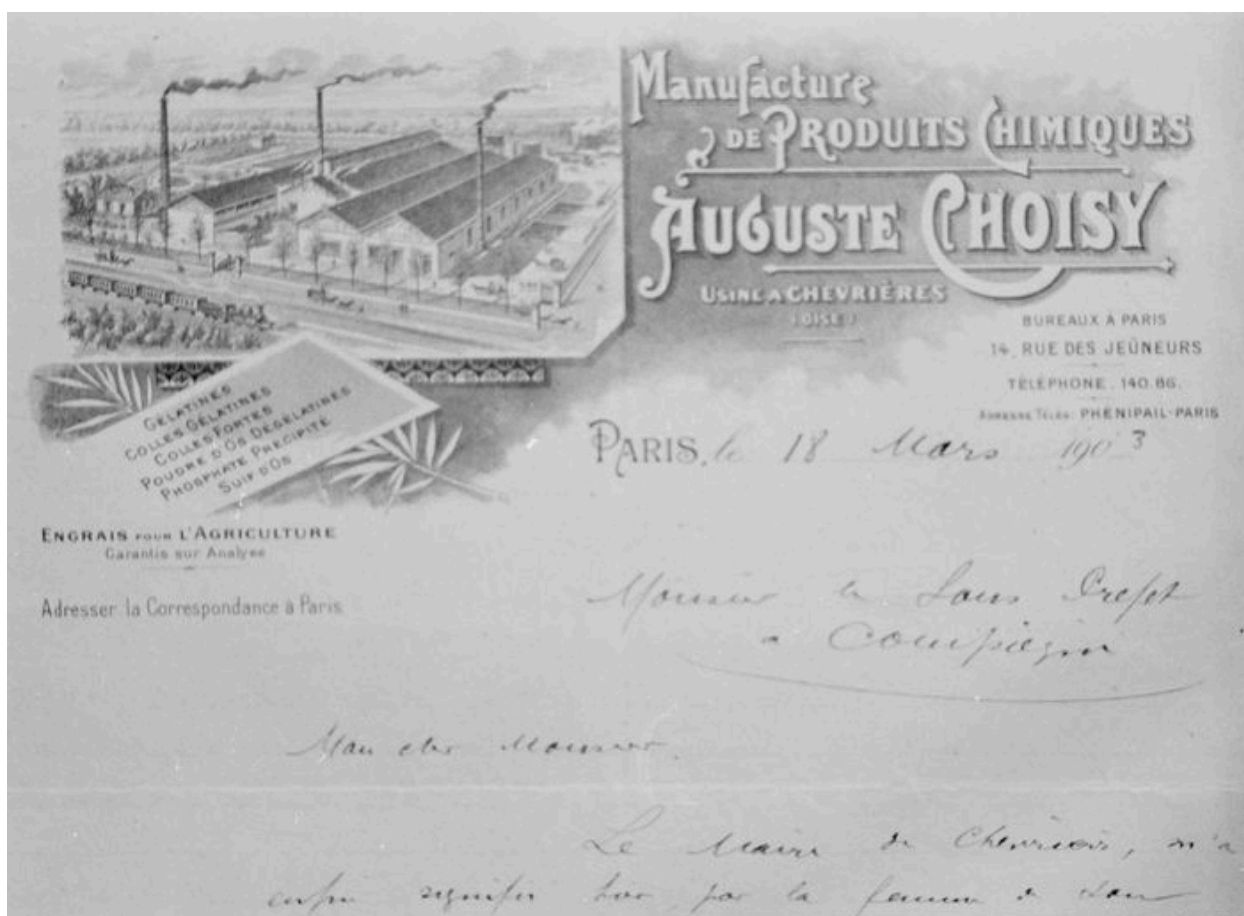 Manufacture
DE PRODUITS CHIMIQUES
AUGUSTE CHOISY
USINE A CHEVRIÈRES
(OISE)
BUREAUX À PARIS
14, RUE DES JEÛNEURS
TÉLÉPHONE. 140.86.
ADRESSE TÉLÉG: PHÉNIPAIL-PARIS
GÉLATINES
COLLES GÉLATINES
COLLES FORTES
POUDRE D'OS DÉGÉLATINÉS
PHOSPHATE PRÉCIPITÉ
SUIF D'OS
PARIS, le 18 Mars 1903
ENGRAIS POUR L'AGRICULTURE
Garantis sur Analyse
Adresser la Correspondance à Paris
Monsieur le Sous Préfet
a Compiègne
Mon cher Monsieur
Le Maire de Chevrières, m'a
enfin signifié hier, par la femme de son